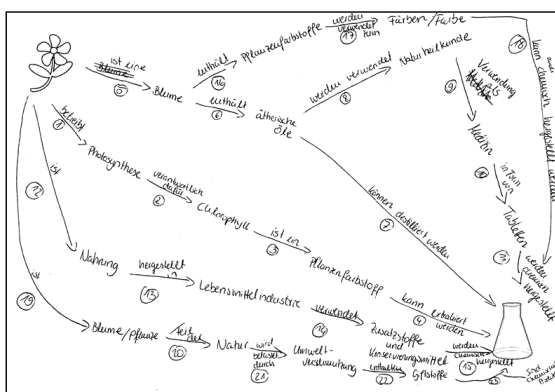 ist eine
Blume
5
Blume
enthält
16
Pflanzenfarbstoffe
werden
verwendet
zum
17
Färben/Farbe
18
kann auch chemisch hergestellt werden
enthält
6
ätherische
Öle
werden verwendet
8
Naturheilkunde
9
Verwendung
als
Medizin
10
in Form
von
Tabletten
11
werden
chemisch
hergestellt
7
können destilliert werden
betreibt
1
Photosynthese
verantwortlich
dafür
2
Chlorophyll
ist ein
3
Pflanzenfarbstoff
kann extrahiert
werden
4
12
ist
Nahrung
hergestellt
in
13
Lebensmittelindustrie
verwendet
14
Zusatzstoffe
und
Konservierungsmittel
werden
chemisch
15
hergestellt
19
ist
Blume/Pflanze
Teil
der
20
Natur
wird
belastet
durch
21
Umwelt-
verschmutzung
enthalten
22
Giftstoffe
23
sind